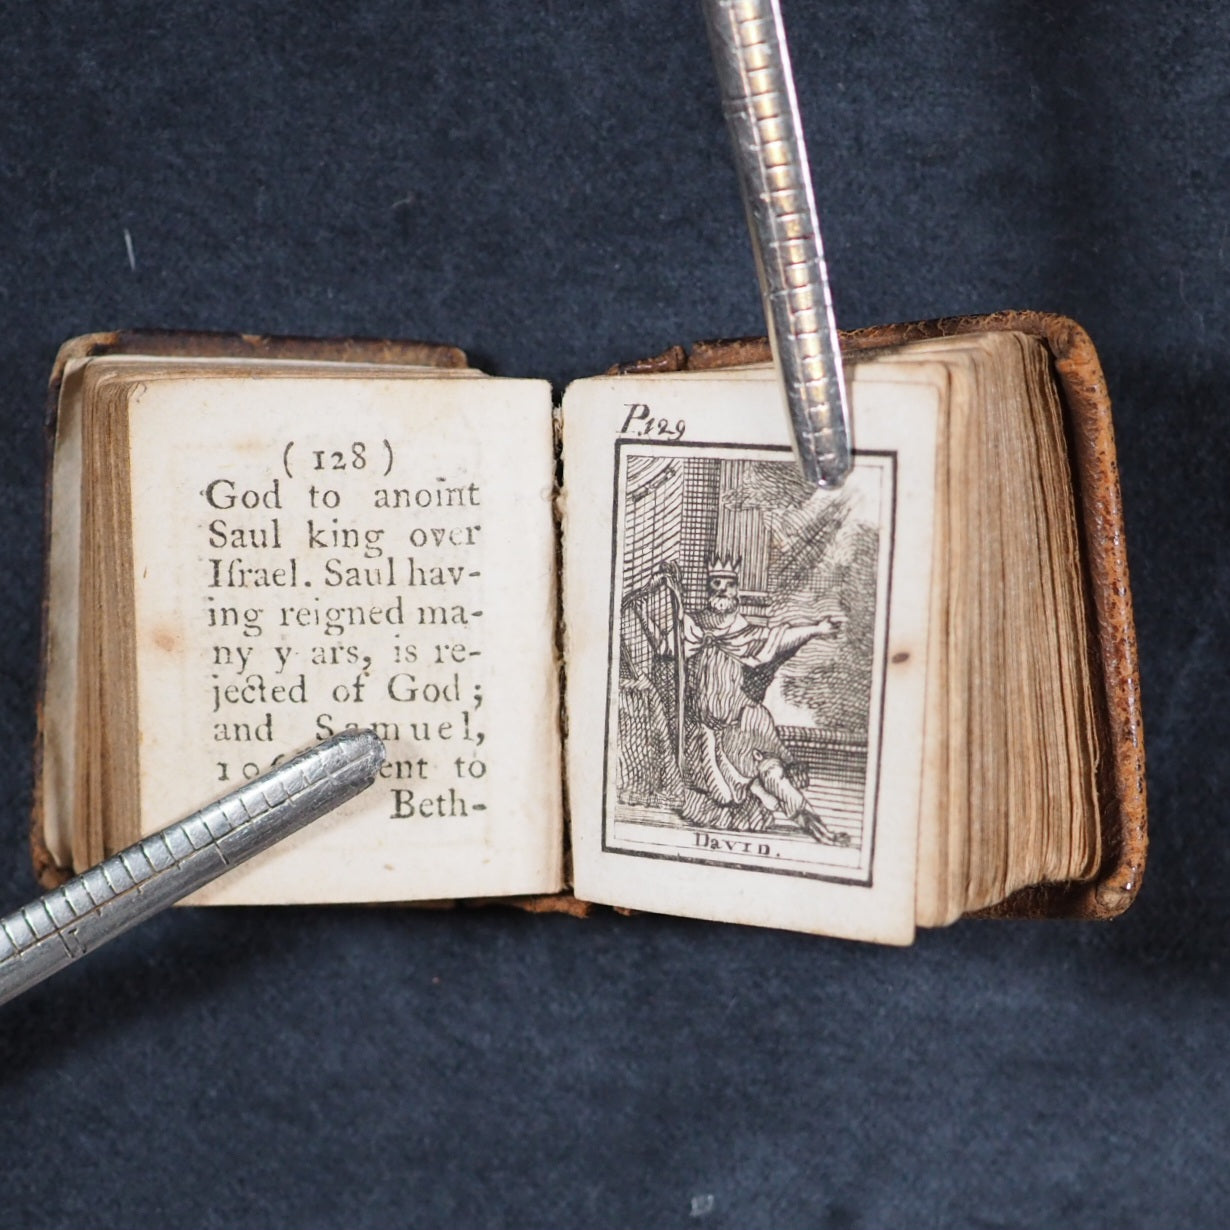 ( 128 )
God to anoint
Saul king over
Iſrael. Saul hav-
ing reigned ma-
ny y ars, is re-
jected of God ;
and Samuel,
to
Beth-
P.129
DaVID.